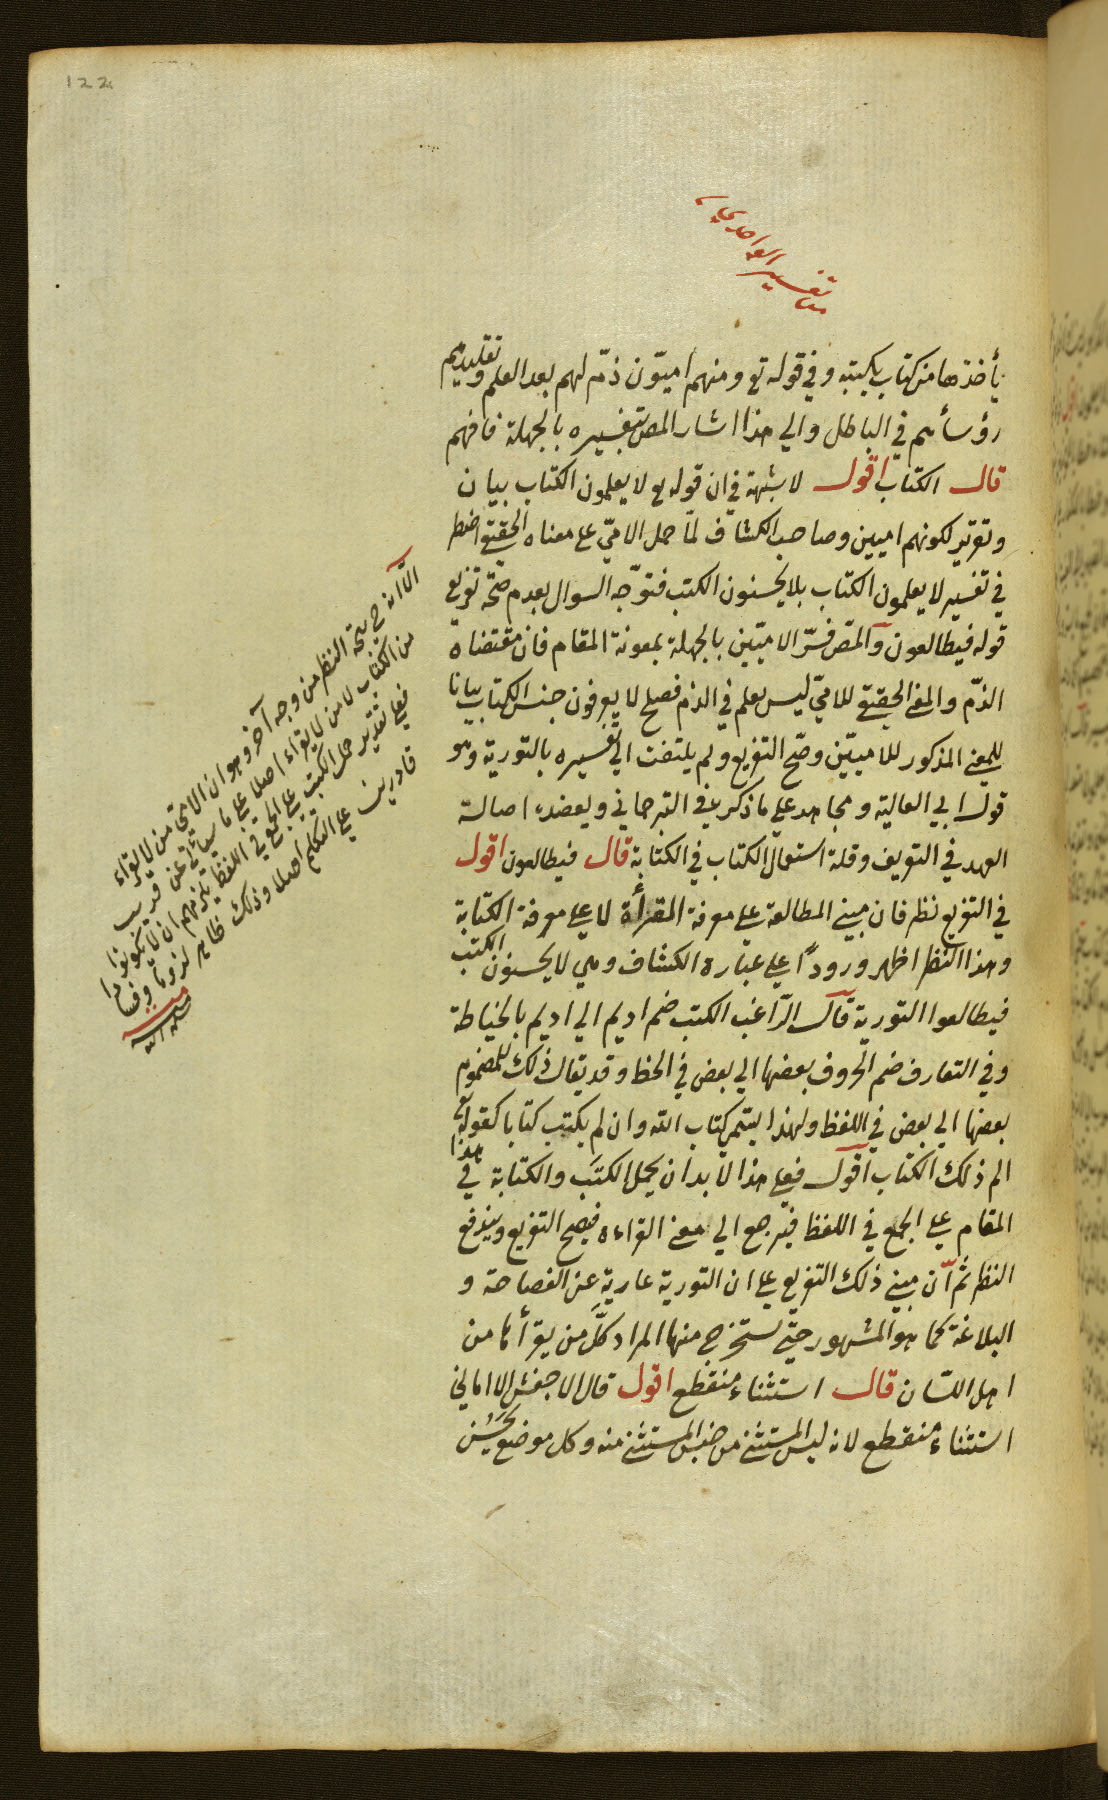 122
تفسير الواحدي
يأخذها من كتاب يكتبه وفي قوله تع ومنهم اميّون ذمّ لهم بعد العلم وتقليدهم
رؤسائهم في الباطل والي هذا اشار المص بتفسيره بالجهلة فافهم
قال الكتاب اقول لا شبهة في ان قوله تع لا يعلمون الكتاب بيان
وتقرير لكونهم اميين وصاحب الكشاف لمّا حمل الاميّ علي معناه الحقيقي اضطر
في تفسير لا يعلمون الكتاب بلا يحسنون الكتب فتوجّه السوال بعدم صحّة تفريع
قوله فيطالعون والمص فسّر الاميّين بالجهلة بمعونة المقام فان مقتضاه
الذمّ والمعني الحقيقي للاميّ ليس بعلم في الذم فصلح لا يعرفون جنس الكتاب بيانا
للمعني المذكور للاميّين وصحّ التفريع ولم يلتفت الي تفسيره بالتورية وهو
قول ابي العالية ومجاهد علي ما ذكر في الترجماني ويعضده اصالة
العهد في التعريف وقلة استعمال الكتاب في الكتابة قال فيطالعون اقول
في التفريع نظر فان مبني المطالعة علي معرفة المقرأة لا علي معرفة الكتابة
وهذا النظر اظهر ورودًا علي عبارة الكشاف وهي لا يحسنون الكتب
فيطالعوا التورية قال الرّاغب الكتب ضم اديم الي اديم بالخياطة
وفي التعارف ضم الحروف بعضها الي بعض في الخط وقد يقال ذلك للمضموم
بعضها الي بعض في اللفظ ولهذا يسمّي كتاب الله وان لم يكتب كتابا كقوله تع
الم ذلك الكتاب اقول فعلي هذا لا بد ان يحمل الكتَب والكتابة في هذا
المقام علي الجمع في اللفظ فيرجع الي معني القراءه فيصح التفريع ويندفع
النظر ثم انّ مبني ذلك التفريع علي ان التورية عارية عن الفصاحة و
البلاغة كما هو المشهور حتّي يستخرج منها المراد كلّ من يقرأها من
اهل اللسان قال استثناء منقطع اقول قال الاخفش الا اماني
استثناء منقطع لانه ليس المستثني من جنس المستثني منه وكل موضع يحسن
الّا انه ح يتجه النظر من وجه آخر وهو ان الامّي من لا يقراء
من الكتاب لا من لا يقراء اصلا علي ما سيأتي عن قريب
فعلي تقدير حمل الكتب علي الجمع في اللفظ يلزمهم ان لا يكونوا
قادرين علي التكلم اصلا وذلك ظاهر